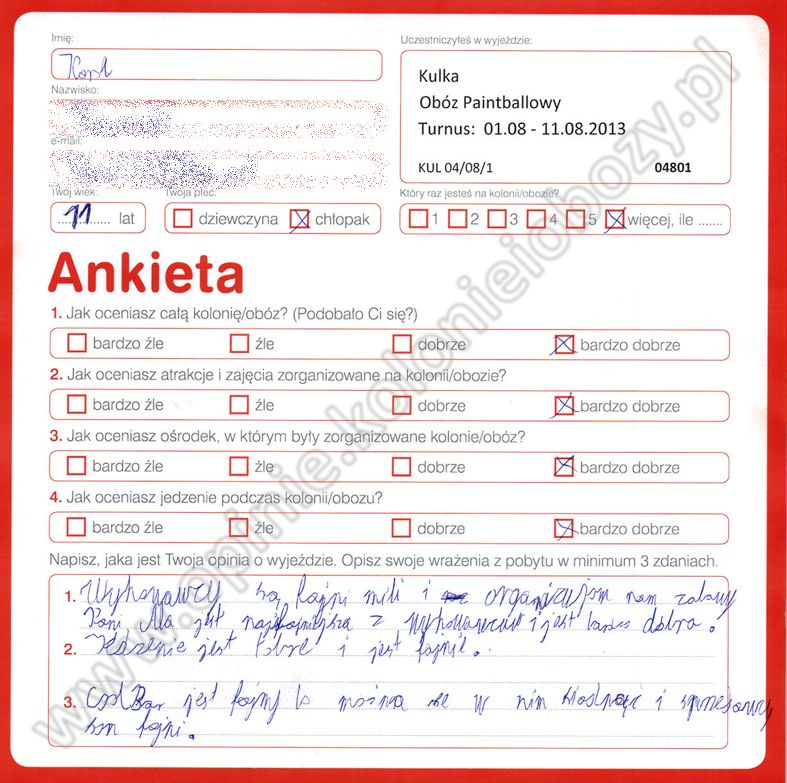 Imię:
Uczestniczyłeś w wyjeździe:
Kulka
Nazwisko:
Obóz Paintballowy
Turnus: 01.08 - 11.08.2013
e-mail:
KUL 04/08/1 04801
Twój wiek: Twoja płeć: Który raz jesteś na kolonii/obozie?
11 lat dziewczyna chłopak 1 2 3 4 5 więcej, ile .......
Ankieta
1. Jak oceniasz całą kolonię/obóz? (Podobało Ci się?)
bardzo źle źle dobrze bardzo dobrze
2. Jak oceniasz atrakcje i zajęcia zorganizowane na kolonii/obozie?
bardzo źle źle dobrze bardzo dobrze
3. Jak oceniasz ośrodek, w którym były zorganizowane kolonie/obóz?
bardzo źle źle dobrze bardzo dobrze
4. Jak oceniasz jedzenie podczas kolonii/obozu?
bardzo źle źle dobrze bardzo dobrze
Napisz, jaka jest Twoja opinia o wyjeździe. Opisz swoje wrażenia z pobytu w minimum 3 zdaniach.
1. Wyhonawcy są fajni mili i organizujom nam zabawy
Pani Ula jest z wyhonawców i jest dobra.
2. jest i jest fajnie.
3. jest fajny bo można w nim i
som fajni.
www.opinie.kolonieiobozy.pl